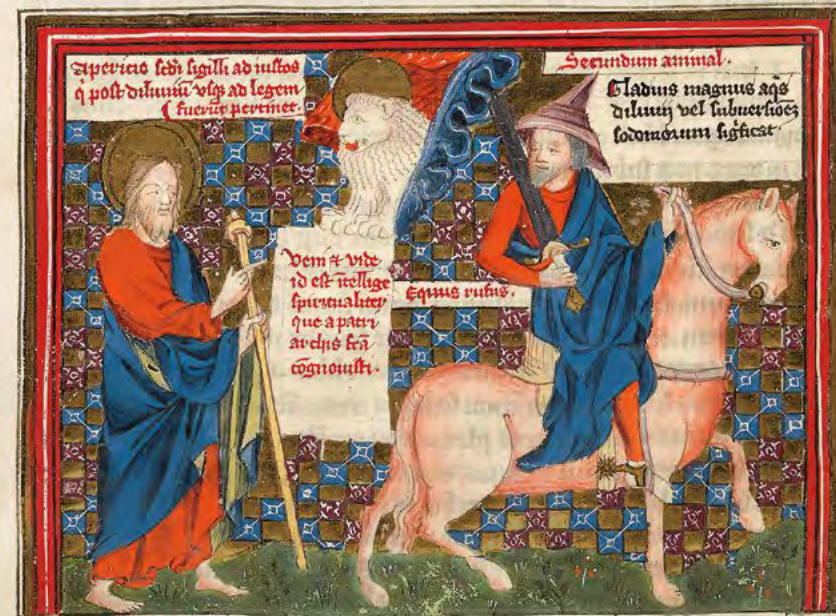 Apericio scdi sigilli ad iustos
q̄ post diluuiū vsqȝ ad legem
fuerūt pertinet.
Secundum animal.
Gladius magnus aq̄s
diluuij vel subuersiōeȝ
sodomorum sigficat.
Veni et vide
id est ītellige
spiritualiter
que a patri
archis scā
cognouisti.
Equus rufus.